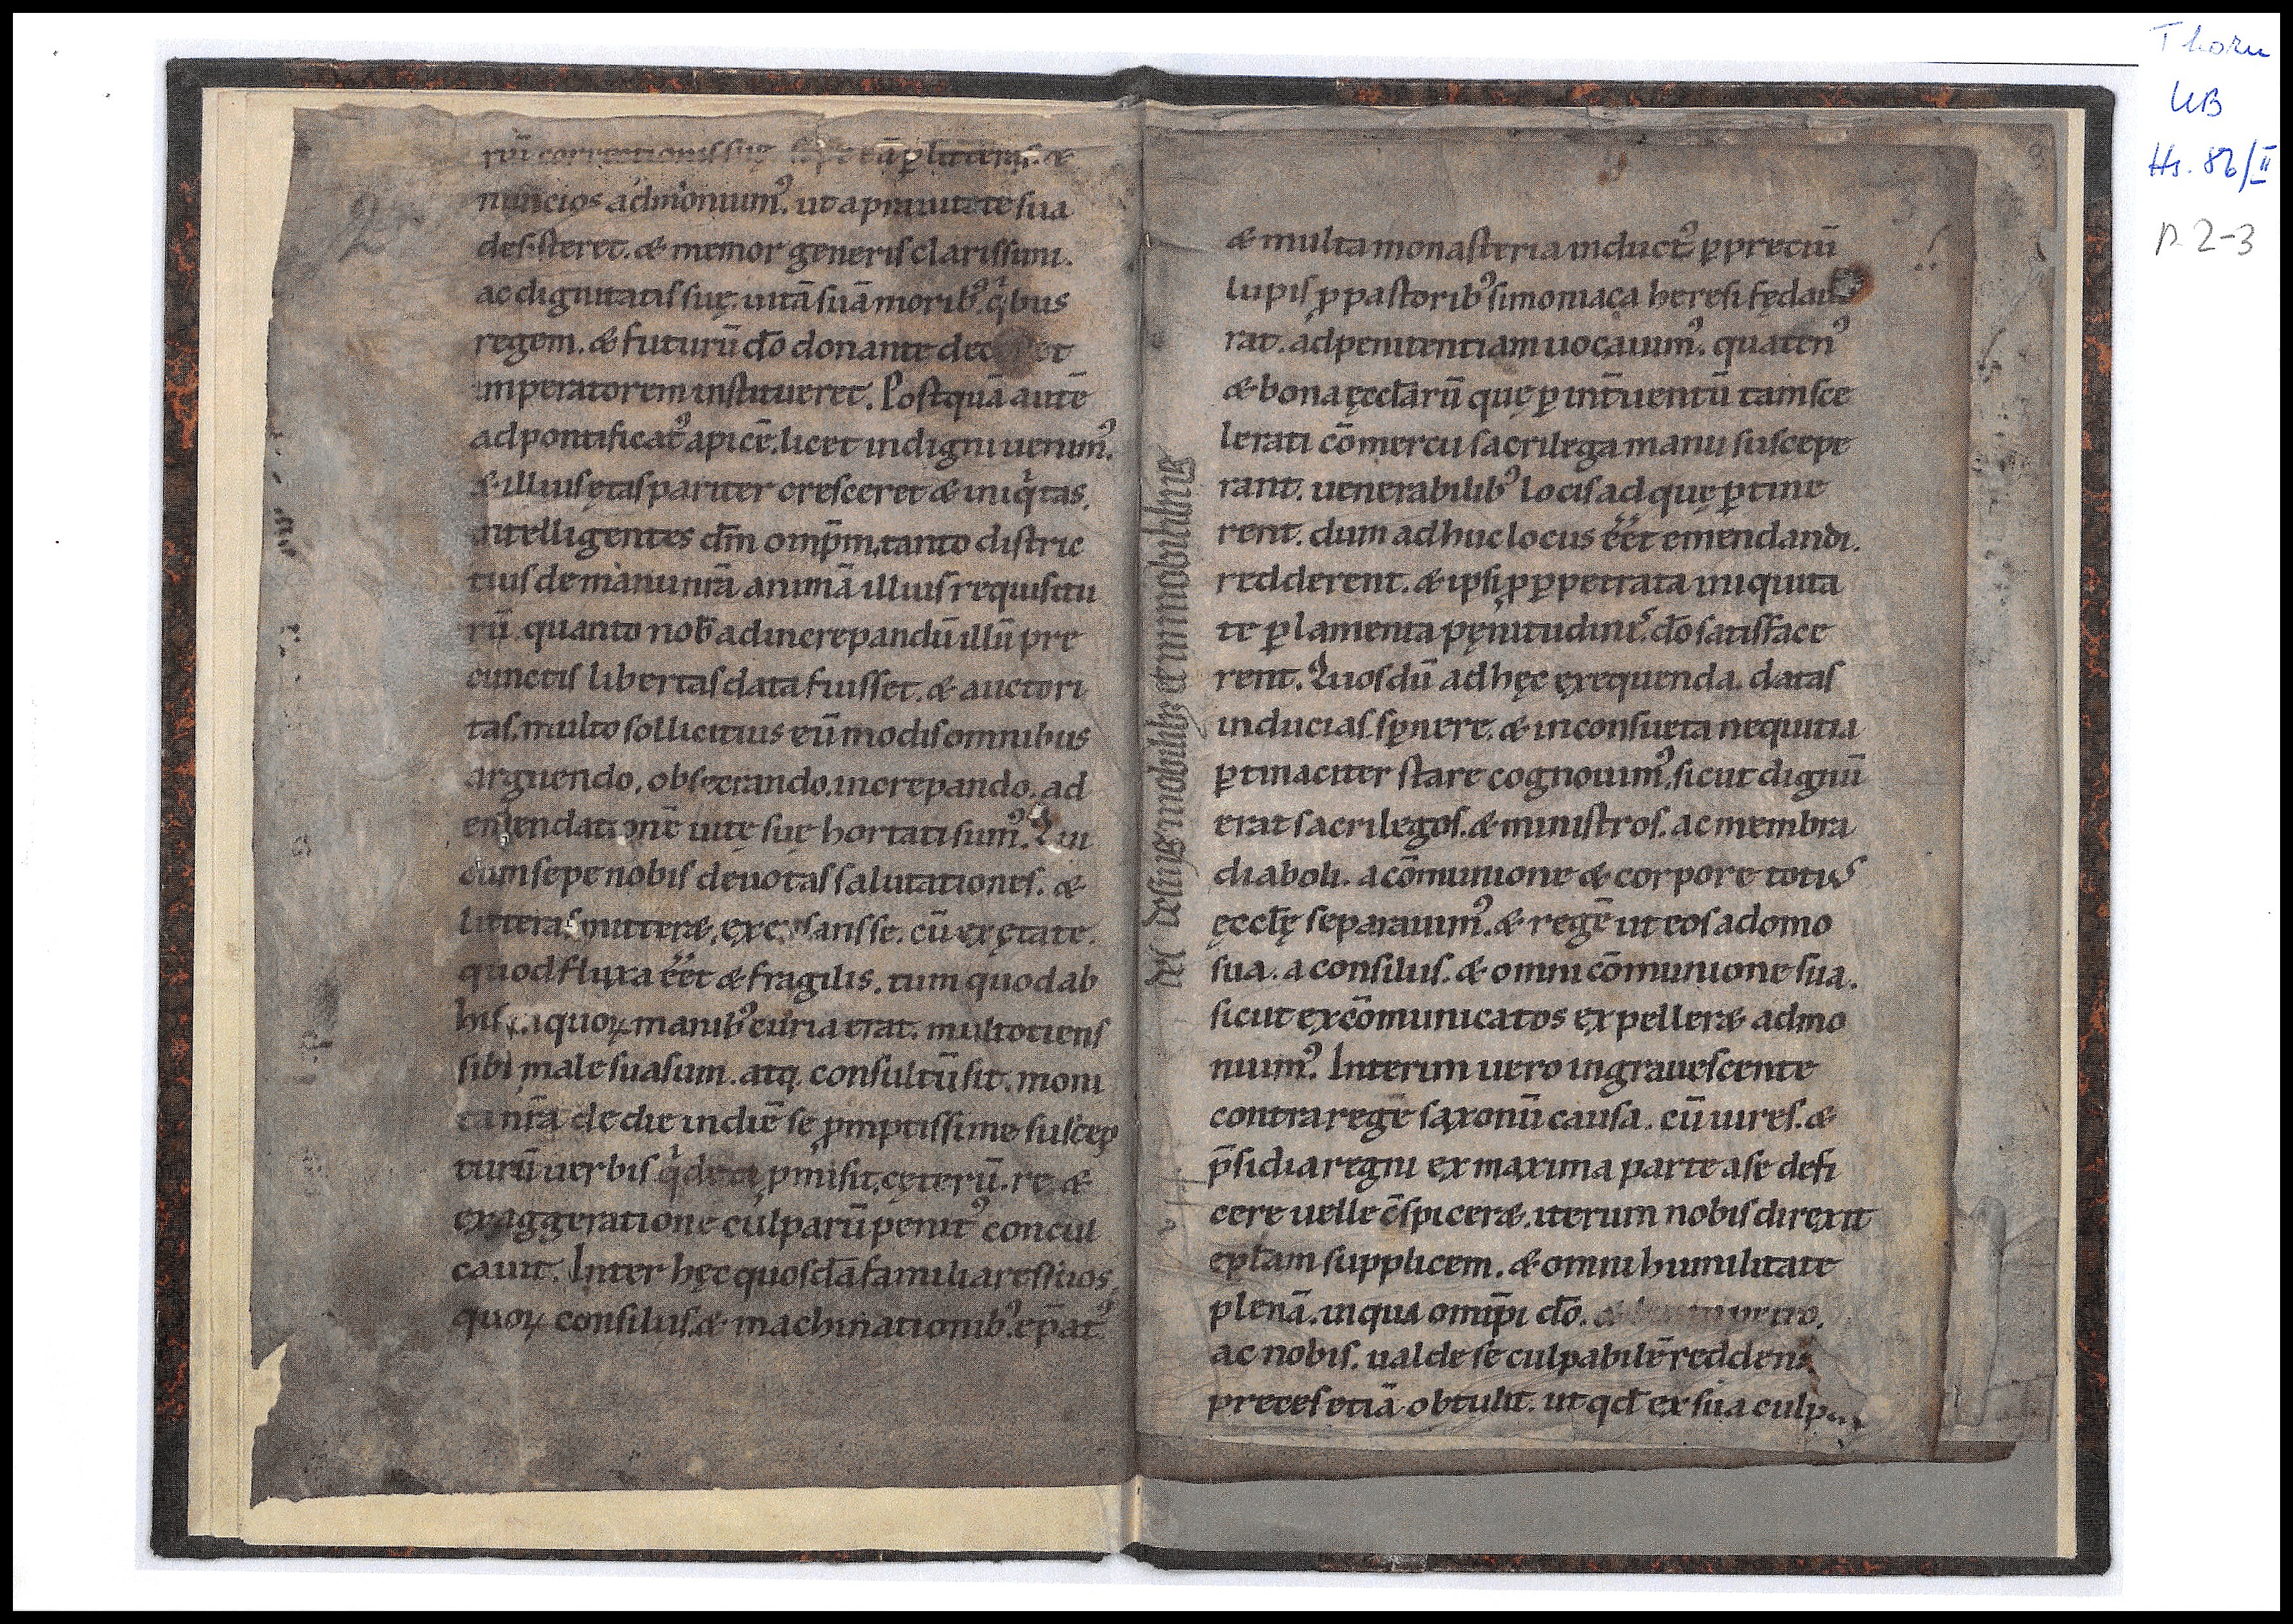 2
rū correctionis suę sepe eū p litteras. &
nuncios admonuim᾽. ut a prauitate sua
desisteret. & memor generis clarissimi.
ac dignitatis suę. uitā suā morib᾽. qͥbus
regem. & futurū dō donante
imperatorem institueret. Postquā autē
ad pontificat᾽ apicē. licet indigni uenim᾽.
& illius ętas pariter cresceret & iniqͥtas.
intelligentes dm̄ omp̄m, tanto distric
tius de manu nr̄a animā illius requisitu
rū. quanto nob̄ ad increpandū illū pre
cunctis libertas data fuisset. & auctori
tas, multo sollicitius eū modis omnibus
arguendo, obsecrando, increpando, ad
emendationē uitę suę hortati sum᾽. Qui
cum sepe nobis deuotas salutationes. &
litteras mitter&, excusans se. cū ex ętate.
quod fluxa ēēt & fragilis. tum quod ab
his quoꝝ manib᾽ curia erat. multotiens
sibi male suasum. atq; consultū sit. moni
ta nr̄a de die in diē se ꝓmptissime suscep
turū uerbis qͥdem ꝓmisit, cęterū. re &
exaggeratione culparū penit᾽ concul
cauit. Inter hęc quosdā familiares suos,
quoꝝ consiliis. & machinationib᾽. ep̄at᾽
3
& multa monasteria induct᾽ ꝑ preciū
lupis ꝓ pastorib᾽ simoniaca heresi fędaue
rat. ad penitentiam uocauim᾽. quaten᾽
& bona ęccl̄arū quę ꝑ int̄uentū tam sce
lerati cōmercii sacrilega manu suscepe
rant. uenerabilib᾽ locis ad quę ꝑtine
rent. dum adhuc locus ēēt emendandi.
redderent. & ipsi ꝓ ꝑpetrata iniquita
te ꝑ lamenta pęnitudinis dō satisface
rent. Quos dū ad hęc exequenda. datas
inducias. sꝑnere. & in consueta nequitia
ꝑtinaciter stare cognouim᾽, sicut dignū
erat sacrilegos. & ministros. ac membra
diaboli. a cōmunione & corpore totius
ęccl̄ę separauim᾽. & regē ut eos a domo
sua. a consiliis. & omni cōmunione sua.
sicut excōmunicatos expeller& admo
nuim᾽. Interim uero ingrauescente
contra regē saxonū causa. cū uires. &
p̄sidia regni ex maxima parte a se defi
cere uelle c̄spicer&. iterum nobis direxit
epl̄am supplicem. & omni humilitate
plenā. in qua omīpi dō.
ac nobis. ualde se culpabilē reddens
preces etiā obtulit. ut qd̄ ex sua culpa
Thorn
UB
Hs. 86/II
p. 2-3